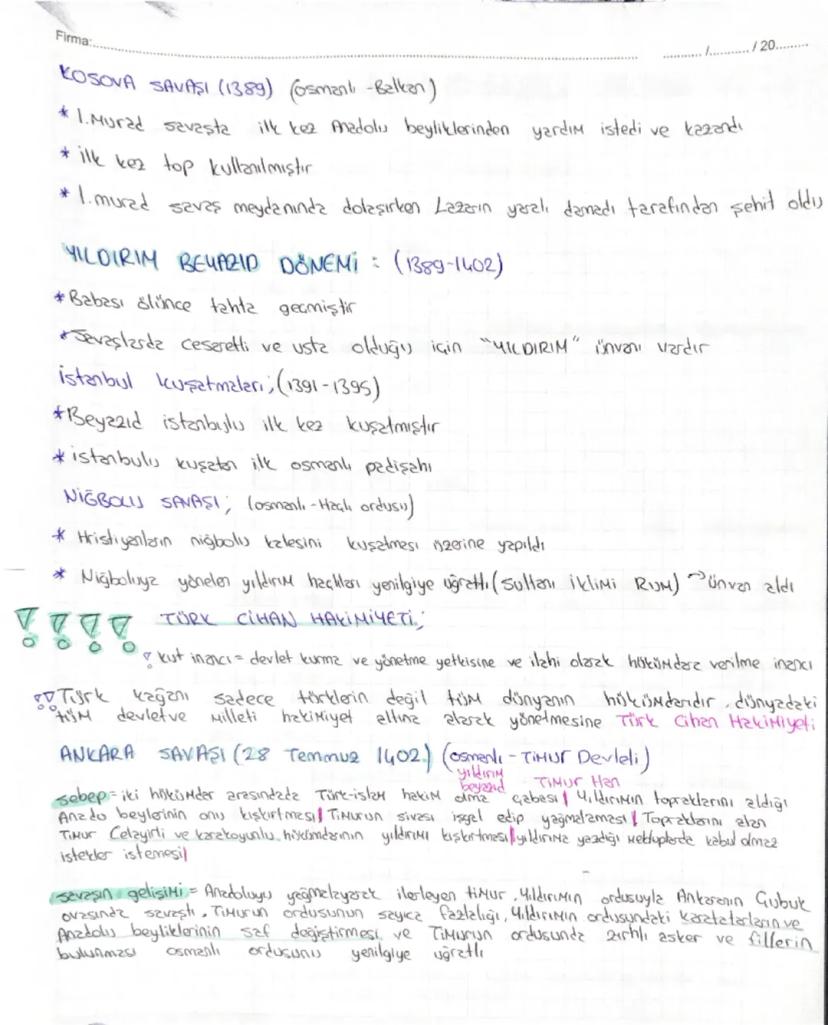 Firma:.......... ....../....../20......
KOSOVA SAVAŞI (1389) (osmanlı - Balkan)
* I. Murad savaşta ilk kez Anadolu beyliklerinden yardım istedi ve kazandı
* ilk kez top kullanılmıştır
* I. murad savaş meydanında dolaşırken Lazarın yaralı damadı tarafından şehit oldu
YILDIRIM BEYAZID DÖNEMİ : (1389-1402)
* Babası ölünce tahta geçmiştir
* Savaşlarda cesaretli ve usta olduğu için "YILDIRIM" ünvanı vardır
istanbul kuşatmaları; (1391-1395)
* Beyazıd istanbulu ilk kez kuşatmıştır
* istanbulu kuşatan ilk osmanlı padişahı
NİĞBOLU SAVAŞI; (osmanlı - Haçlı ordusu)
* Hristiyanların niğbolu kalesini kuşatması üzerine yapıldı
* Niğboluya yönelen yıldırım haçlıları yenilgiye uğrattı (Sultanı iKLiMi RUM) → ünvan aldı
TÜRK CİHAN HAKİMİYETİ;
kut inancı = devlet kurma ve yönetme yetkisine ve ilahi olarak hükümdara verilme inancı
Türk kağanı sadece türklerin değil tüm dünyanın hükümdarıdır. dünyadaki
tüm devlet ve milleti hakimiyet altına alarak yönetmesine Türk Cihan Hakimiyeti
ANKARA SAVAŞI (28 Temmuz 1402) (osmanlı - TİMUR Devleti)
yıldırım beyazıd TİMUR Han
sebep = iki hükümdar arasındada Türk-islam hakim olma çabası / Yıldırımın topraklarını aldığı
Anado beylerinin onu kışkırtması / Timurun sivası işgal edip yağmalaması / Topraklarını alan
Timur Celayirli ve karakoyunlu hükümdarının yıldırımı kışkırtması / yıldırıma yazdığı mektuplarda kabul olmaz
istekler istemesi /
savaşın gelişimi = Anadoluyu yağmalayarak ilerleyen timur, Yıldırımın ordusuyla Ankaranın Çubuk
ovasında savaştı. Timurun ordusunun sayıca fazlalığı, Yıldırımın ordusundaki karatatarların ve
Anadolu beyliklerinin saf değiştirmesi ve Timurun ordusunda zırhlı asker ve fillerin
bulunması osmanlı ordusunu yenilgiye uğrattı